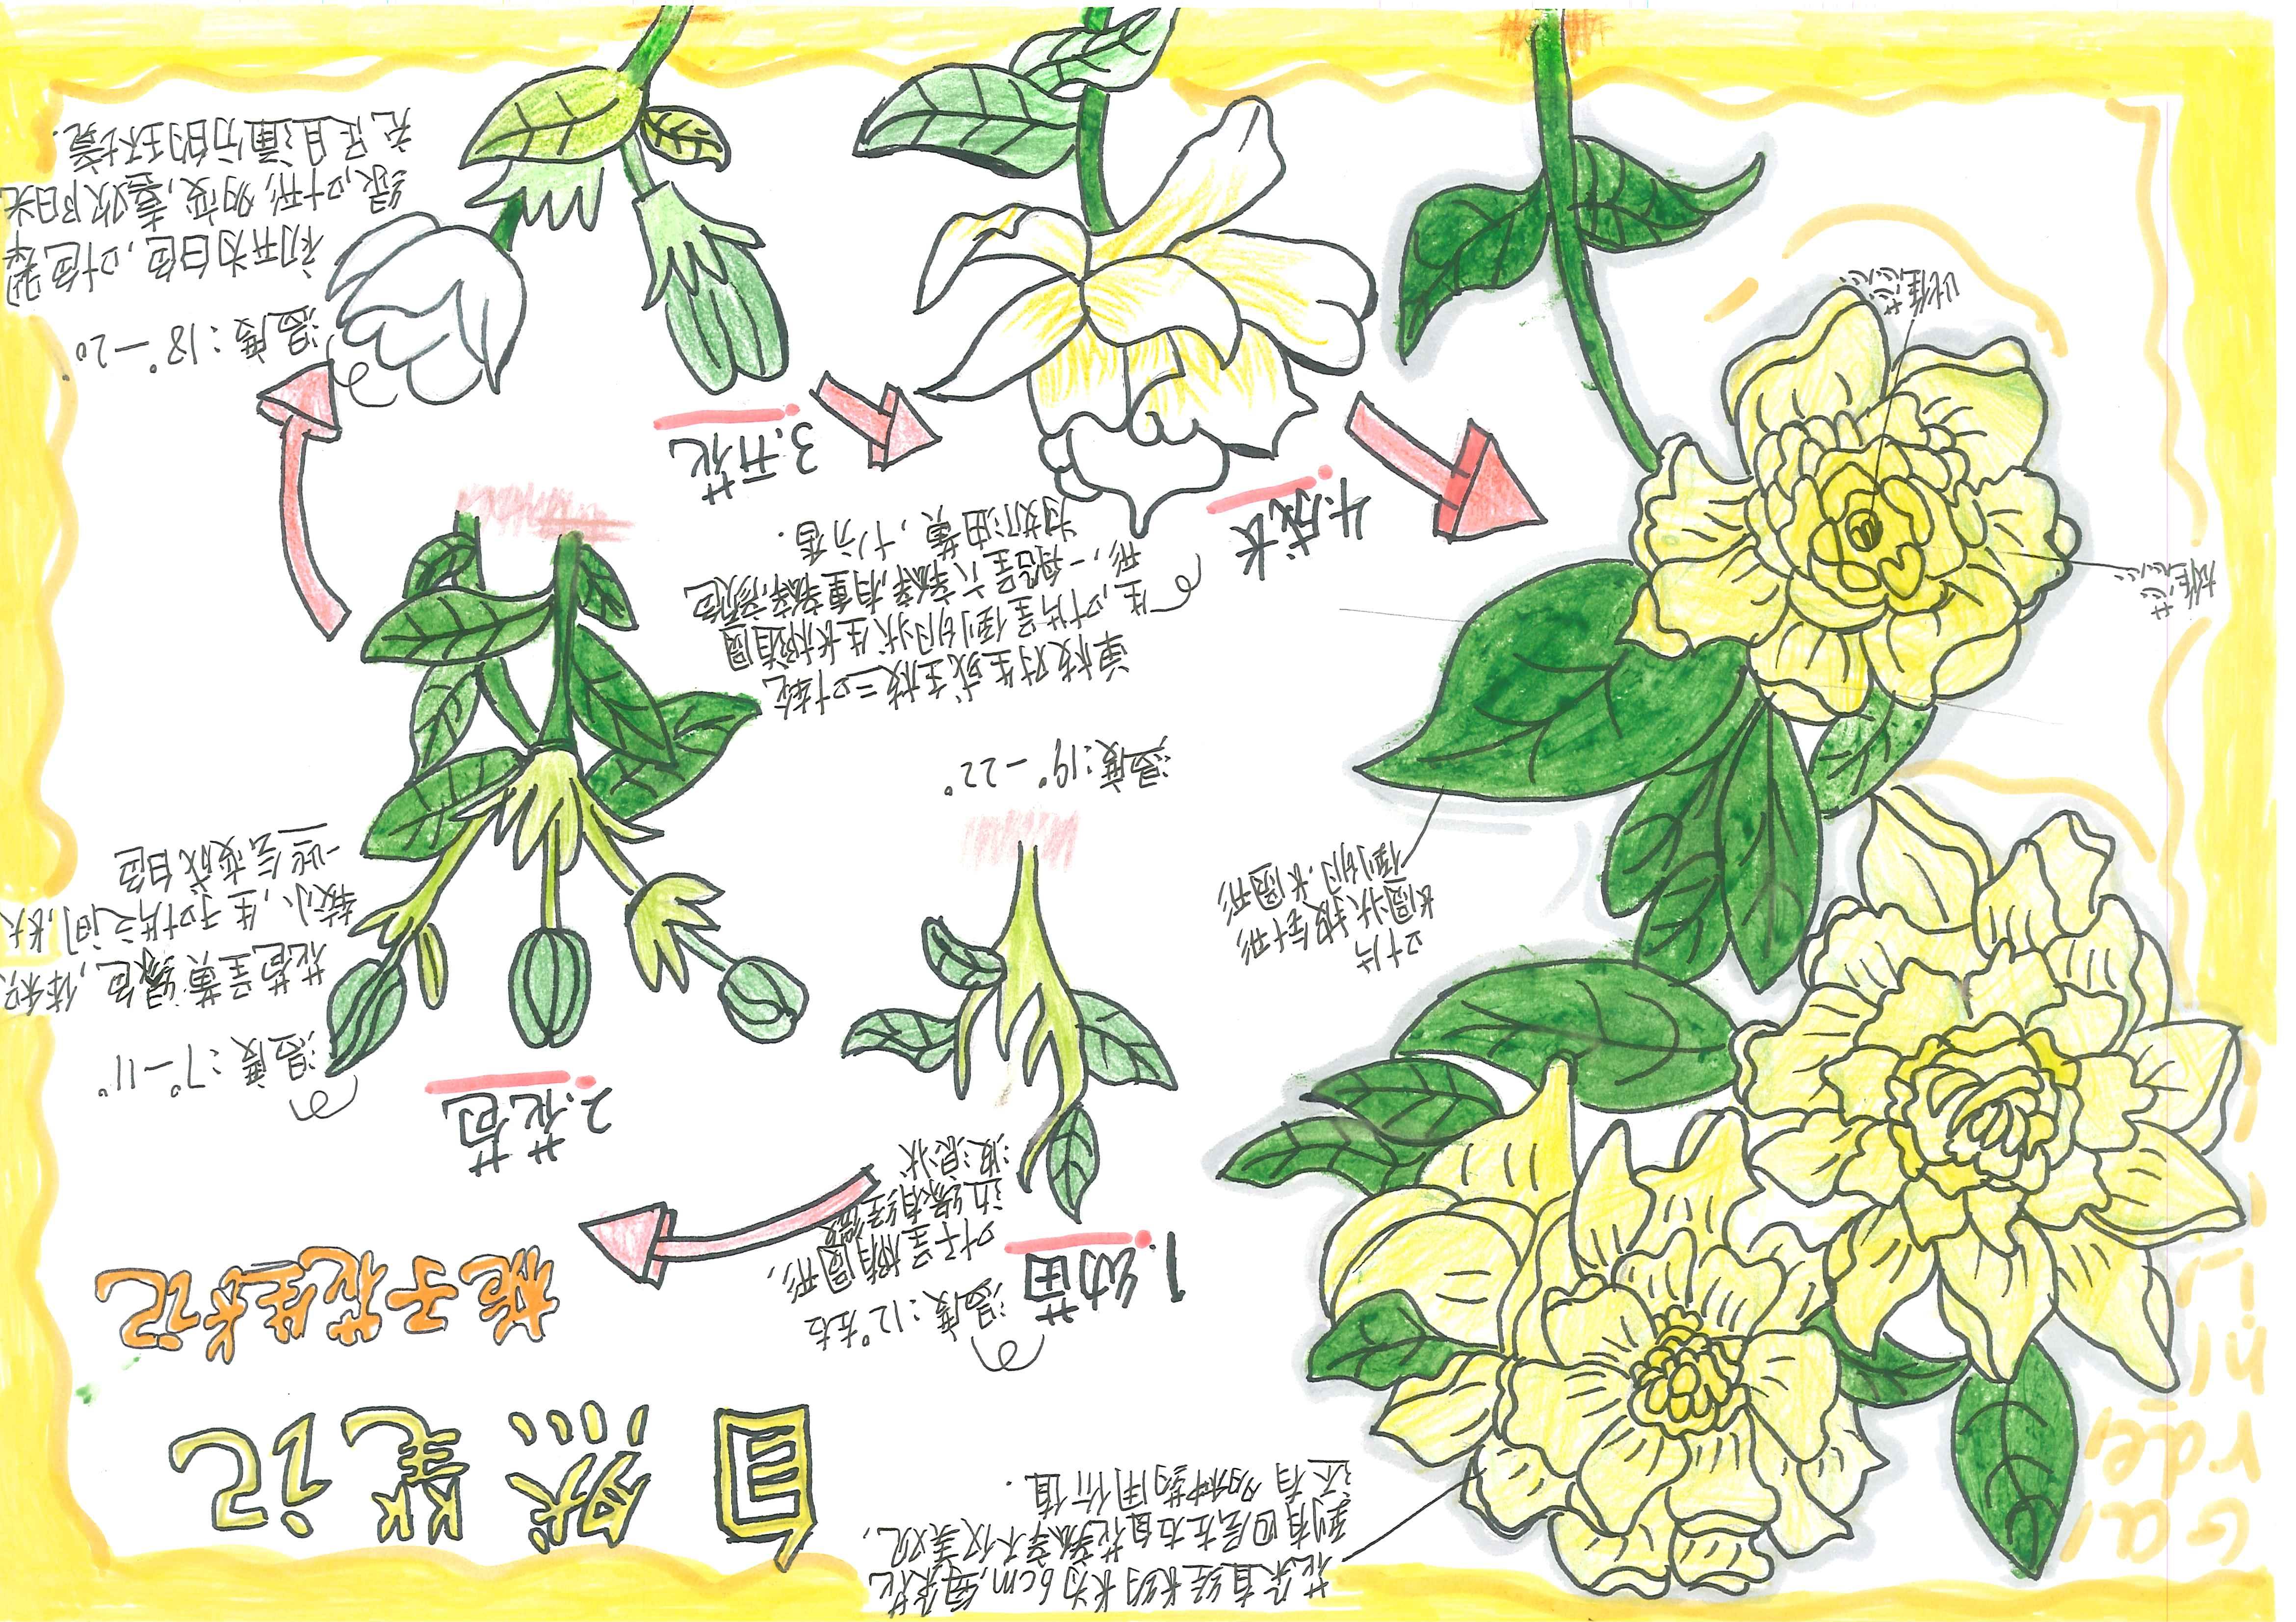 自然笔记
栀子花生长记
花朵直径长约为6cm,每朵花
到有四层左右且花瓣等不仅美观,
还有多种药用价值.
1.幼苗
温度:12°左右
叶子呈椭圆形,
边缘有轻微
波浪状
2.花苞
温度:7°—11°
花苞呈黄绿色,体积
较小,生于叶片之间,长大
一些后变成白色
3.开花
温度:18°—20°
初开为白色,叶色翠
绿,叶形多变,喜欢阳光
充足且通行的环境.
4.成长
温度:19°—22°
单枝对生或主枝三叶轮
生,叶片呈倒卵状生长椭圆
形,一般呈六瓣,有重瓣,颜色
为奶油黄,十分香.
叶片
长圆状披针形
倒卵.长圆形
雄蕊
雌蕊